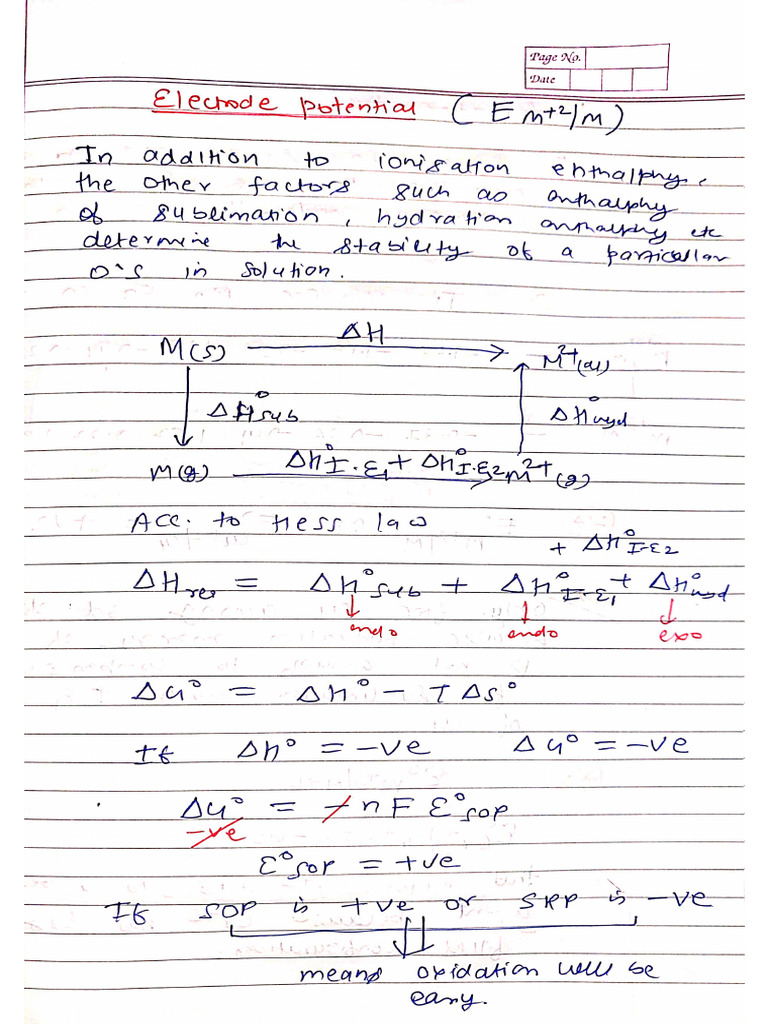 Page No.
Date
Electrode potential (E m+2/m)
In addition to ionisation enthalphy,
the other factors such as enthalphy
of sublimation, hydration enthalphy etc
determine the stability of a particular
O's in solution.
ΔH
M(s) → M2+(aq)
ΔH°sub ΔH°hyd
M(g) ΔH°I.E1 + ΔH°I.E2 → M2+(g)
Acc. to Hess law
+ ΔH°I.E2
ΔHrea = ΔH°sub + ΔH°I.E1 + ΔH°hyd
endo endo exo
ΔG° = ΔH° - TΔS°
If ΔH° = -ve ΔG° = -ve
ΔG° = -nFE°SOP
-ve
E°SOP = +ve
If SOP is +ve or SRP is -ve
means oxidation will be
easy.